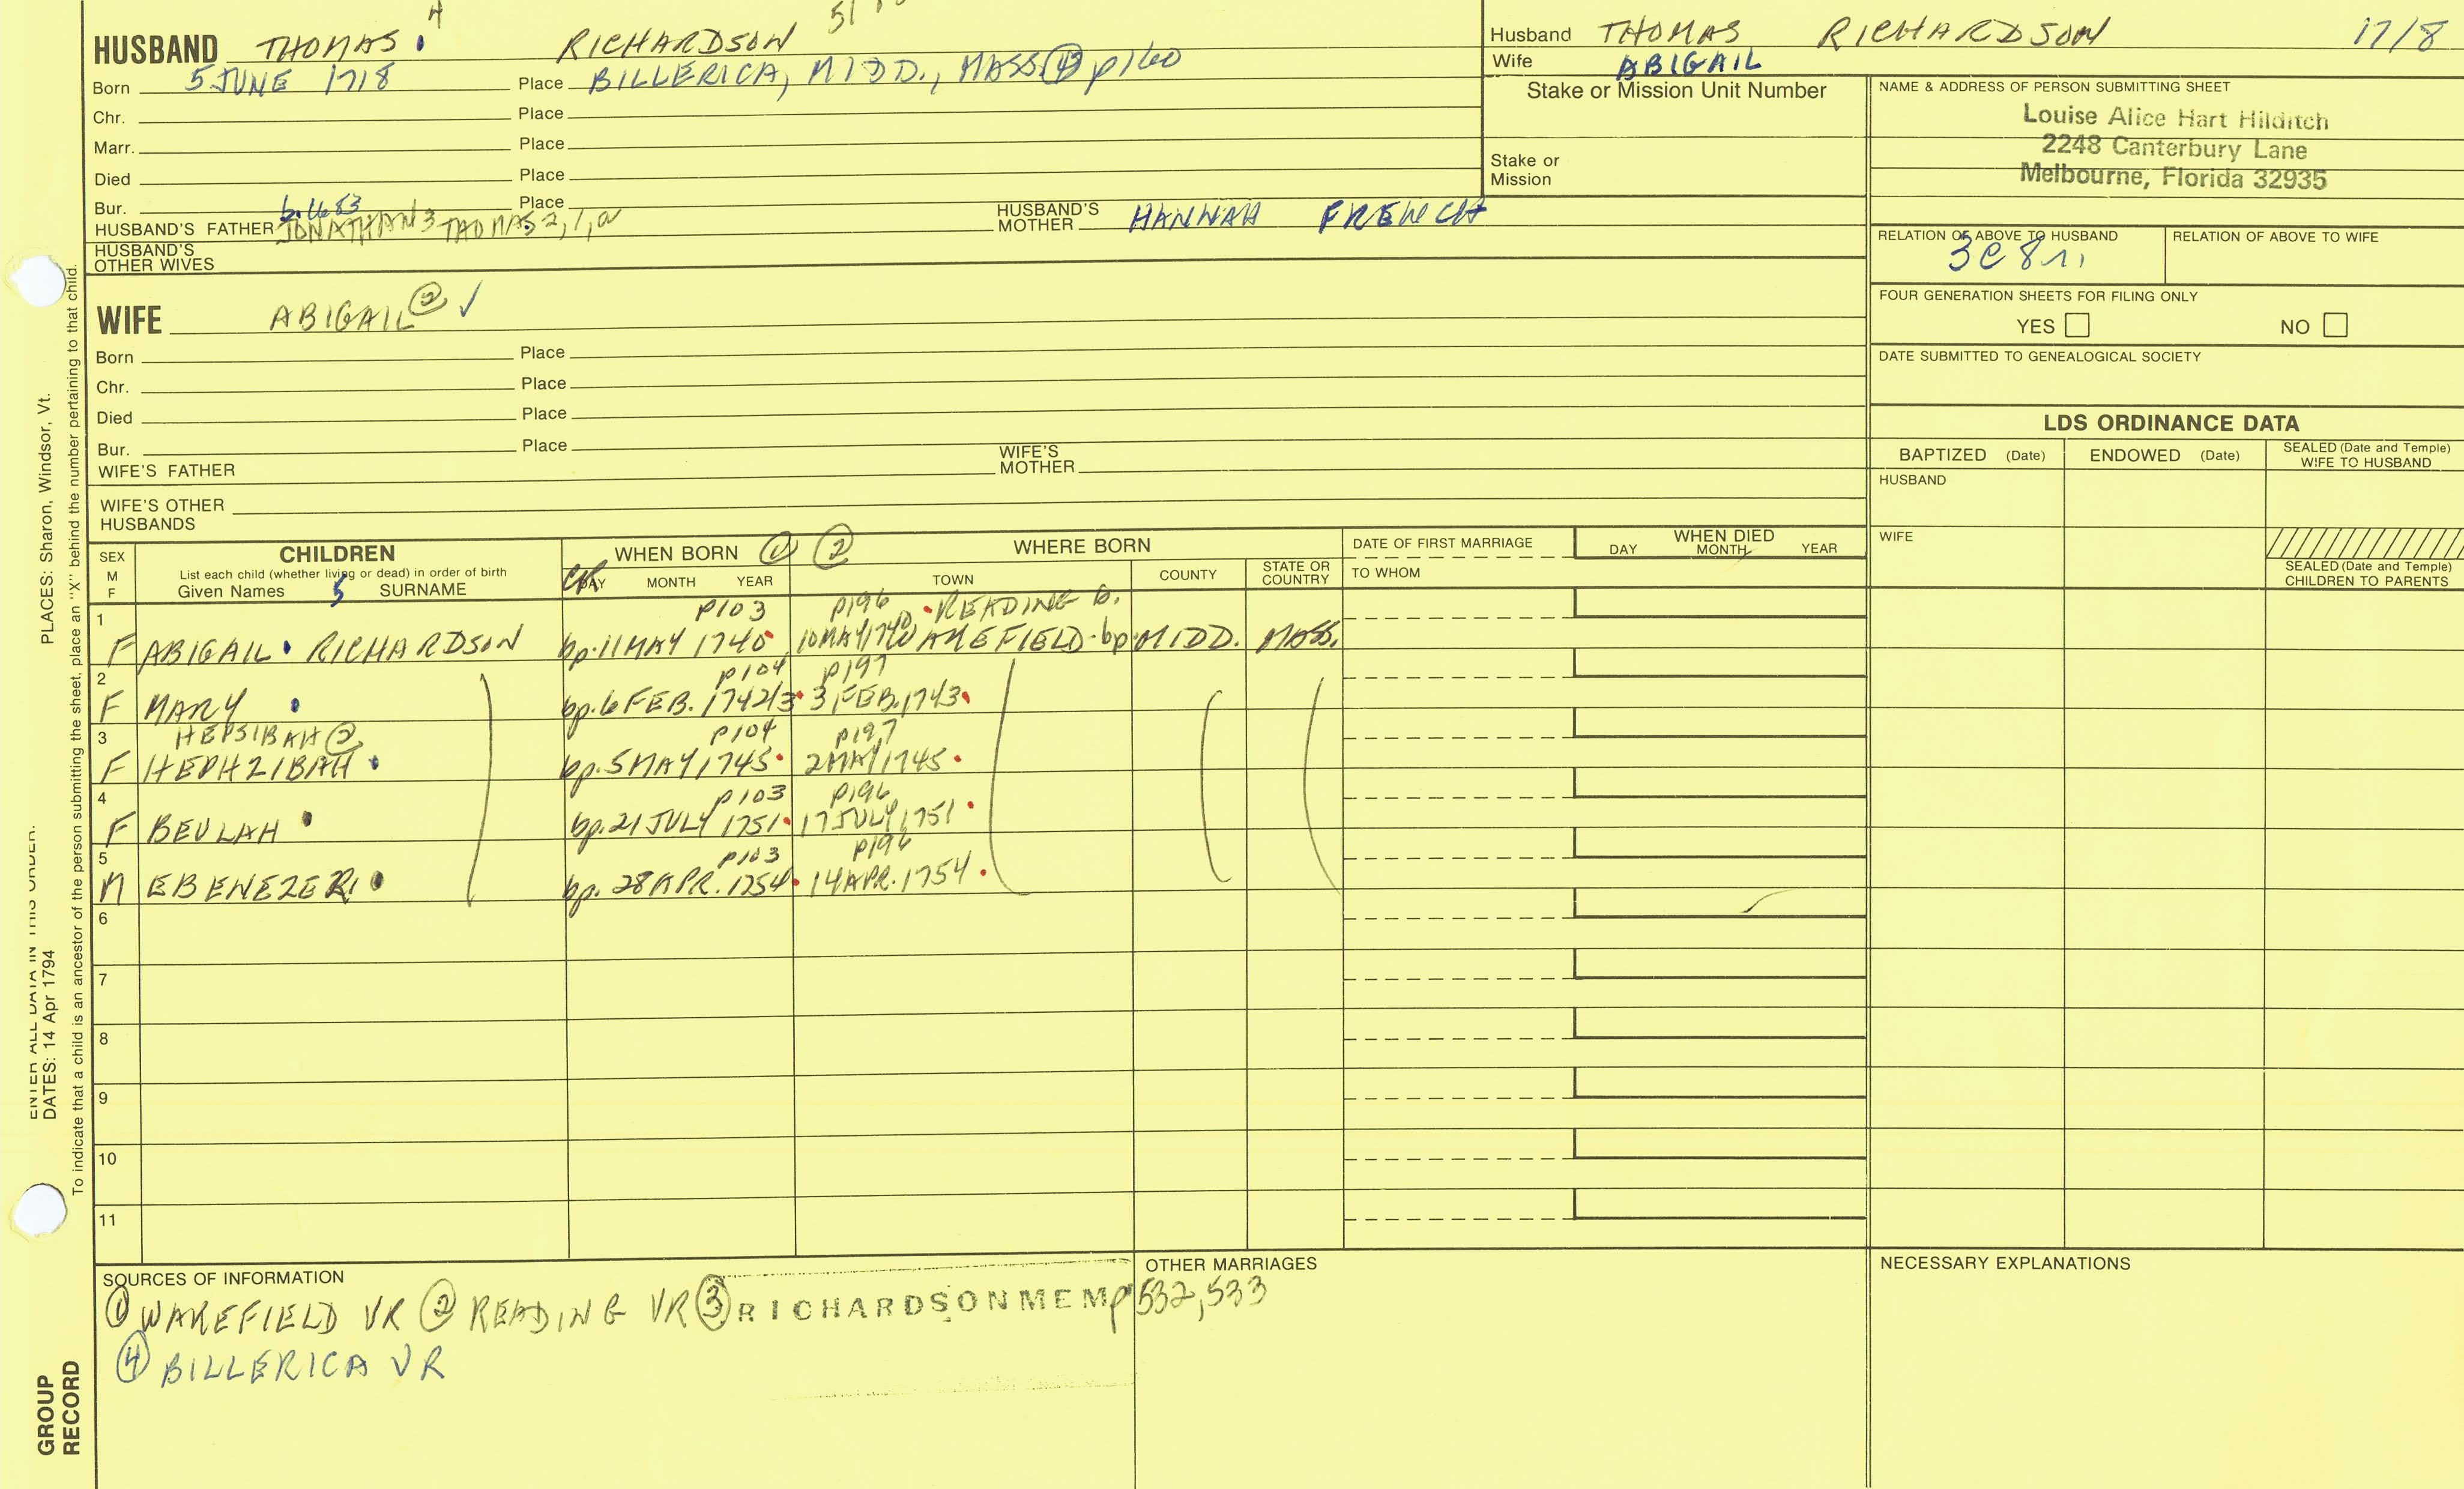 4
HUSBAND THOMAS RICHARDSON
Born 5 JUNE 1718 Place BILLERICA, MIDD., MASS ④ p160
Chr. Place
Marr. Place
Died Place
Bur. Place
b. 1683
HUSBAND'S FATHER JONATHAN 3 THOMAS 2, 1, a HUSBAND'S MOTHER HANNAH FRENCH
HUSBAND'S
OTHER WIVES
WIFE ABIGAIL ② ✓
Born Place
Chr. Place
Died Place
Bur. Place
WIFE'S FATHER WIFE'S MOTHER
WIFE'S OTHER
HUSBANDS
Husband THOMAS RICHARDSON 1718
Wife ABIGAIL
Stake or Mission Unit Number
Stake or
Mission
NAME & ADDRESS OF PERSON SUBMITTING SHEET
Louise Alice Hart Hilditch
2248 Canterbury Lane
Melbourne, Florida 32935
RELATION OF ABOVE TO HUSBAND RELATION OF ABOVE TO WIFE
3C 8r.
FOUR GENERATION SHEETS FOR FILING ONLY
YES NO
DATE SUBMITTED TO GENEALOGICAL SOCIETY
LDS ORDINANCE DATA
BAPTIZED (Date) ENDOWED (Date) SEALED (Date and Temple) WIFE TO HUSBAND
HUSBAND
WIFE
SEALED (Date and Temple)
CHILDREN TO PARENTS
SEX M F CHILDREN WHEN BORN ① ② WHERE BORN DATE OF FIRST MARRIAGE WHEN DIED
List each child (whether living or dead) in order of birth
Given Names 5 SURNAME DAY MONTH YEAR TOWN COUNTY STATE OR COUNTRY TO WHOM DAY MONTH YEAR
1 p103 p196 READING b.
F ABIGAIL RICHARDSON bp. 11 MAY 1740 10 MAY 1740 WAKEFIELD bp MIDD. MASS.
2 p104 p197
F MARY bp. 6 FEB. 1742/3 3 FEB. 1743
3 HEPSIBAH ② p104 p197
F HEPHZIBAH bp. 5 MAY 1745 2 MAY 1745
4 p103 p196
F BEULAH bp. 21 JULY 1751 17 JULY 1751
5 p103 p196
M EBENEZER bp. 28 APR. 1754 14 APR. 1754
6
7
8
9
10
11
SOURCES OF INFORMATION
① WAKEFIELD VR ② READING VR ③ RICHARDSON MEM p 532, 533
④ BILLERICA VR
OTHER MARRIAGES
NECESSARY EXPLANATIONS
PLACES: Sharon, Windsor, Vt.
ENTER ALL DATA IN THIS ORDER:
DATES: 14 Apr 1794
To indicate that a child is an ancestor of the person submitting the sheet, place an "X" behind the number pertaining to that child.
GROUP
RECORD